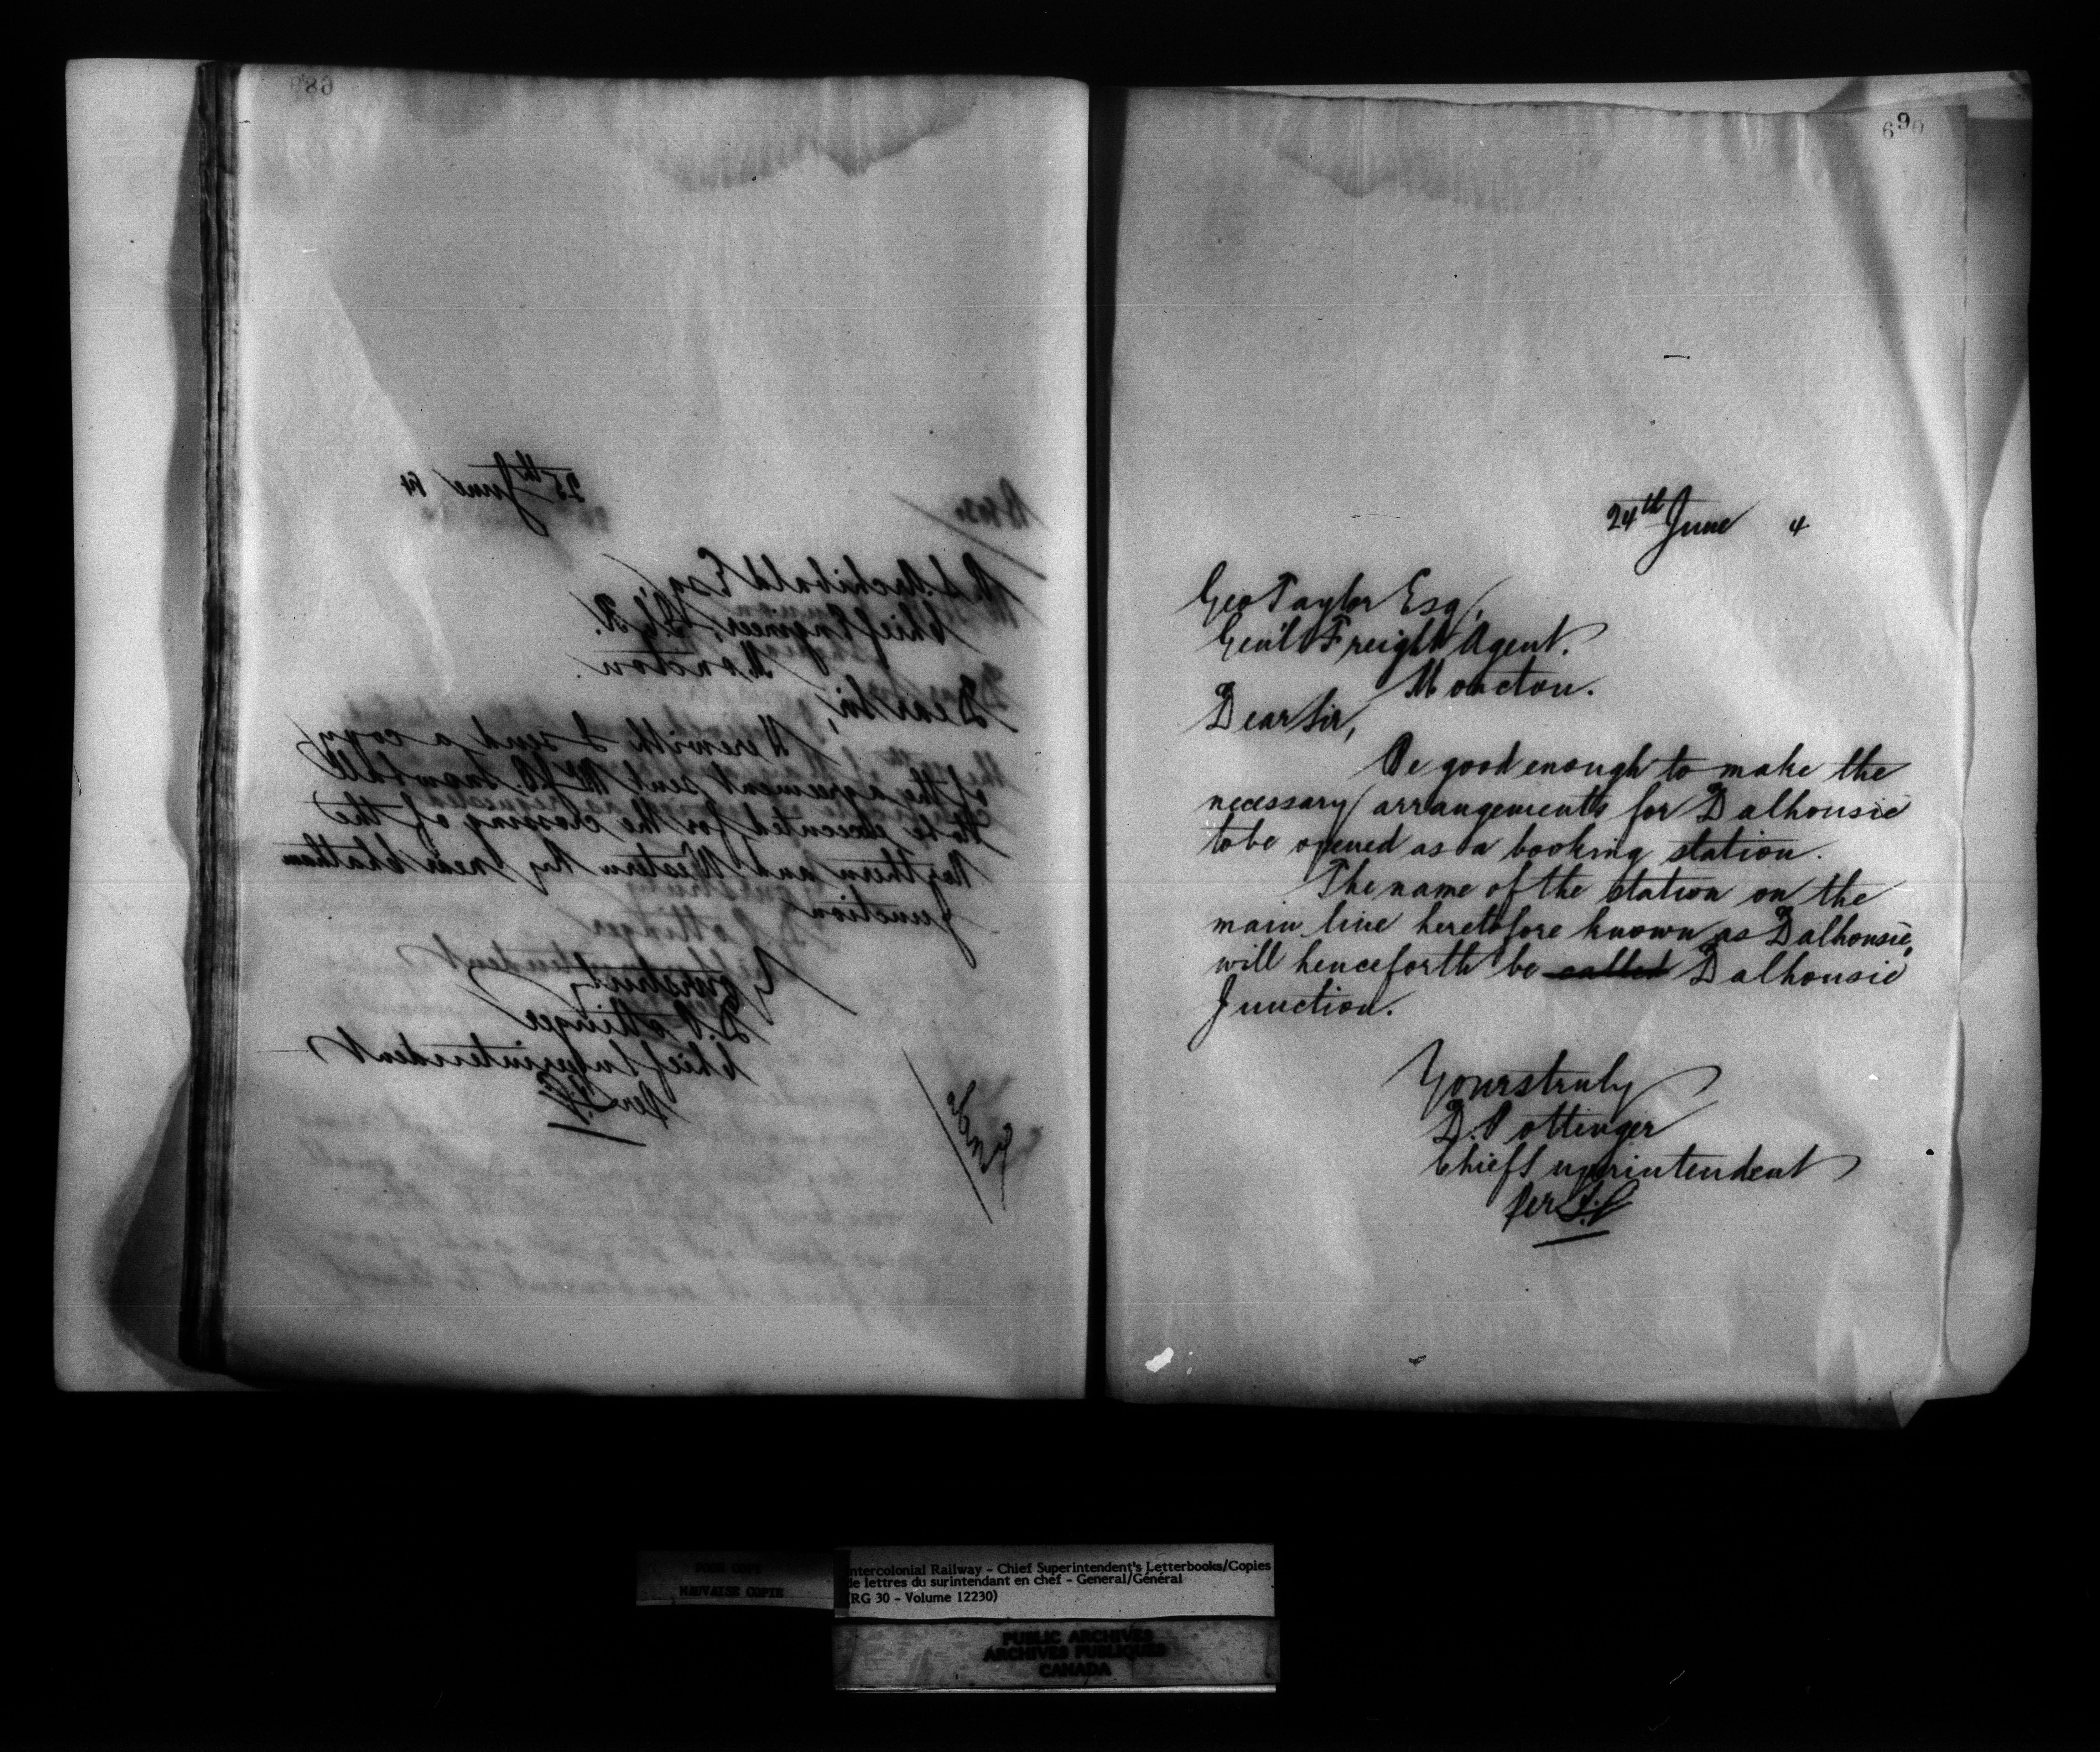 689
25th June 84
P. S. Archibald Esq,
Chief Engineer, I.C.R.
Moncton.
Dear Sir,
Herewith I send a copy
of the agreement sent Mr J.B. Snowball
to be executed for the crossing of the
Northern and Western Ry near Chatham
Junction
Yours truly
D. Pottinger
Chief Superintendent
Per
690
24th June 4
Geo Taylor Esq,
Gen'l Freight Agent.
Moncton.
Dear Sir,
Be good enough to make the
necessary arrangements for Dalhousie
to be opened as a booking station.
The name of the station on the
main line heretofore known as Dalhousie,
will henceforth be called Dalhousie
Junction.
Yours truly
D. Pottinger
Chief Superintendent
Per
POOR COPY
MAUVAISE COPIE
ntercolonial Railway - Chief Superintendent's Letterbooks/Copies
de lettres du surintendant en chef - General/Général
(RG 30 - Volume 12230)
PUBLIC ARCHIVES
ARCHIVES PUBLIQUES
CANADA